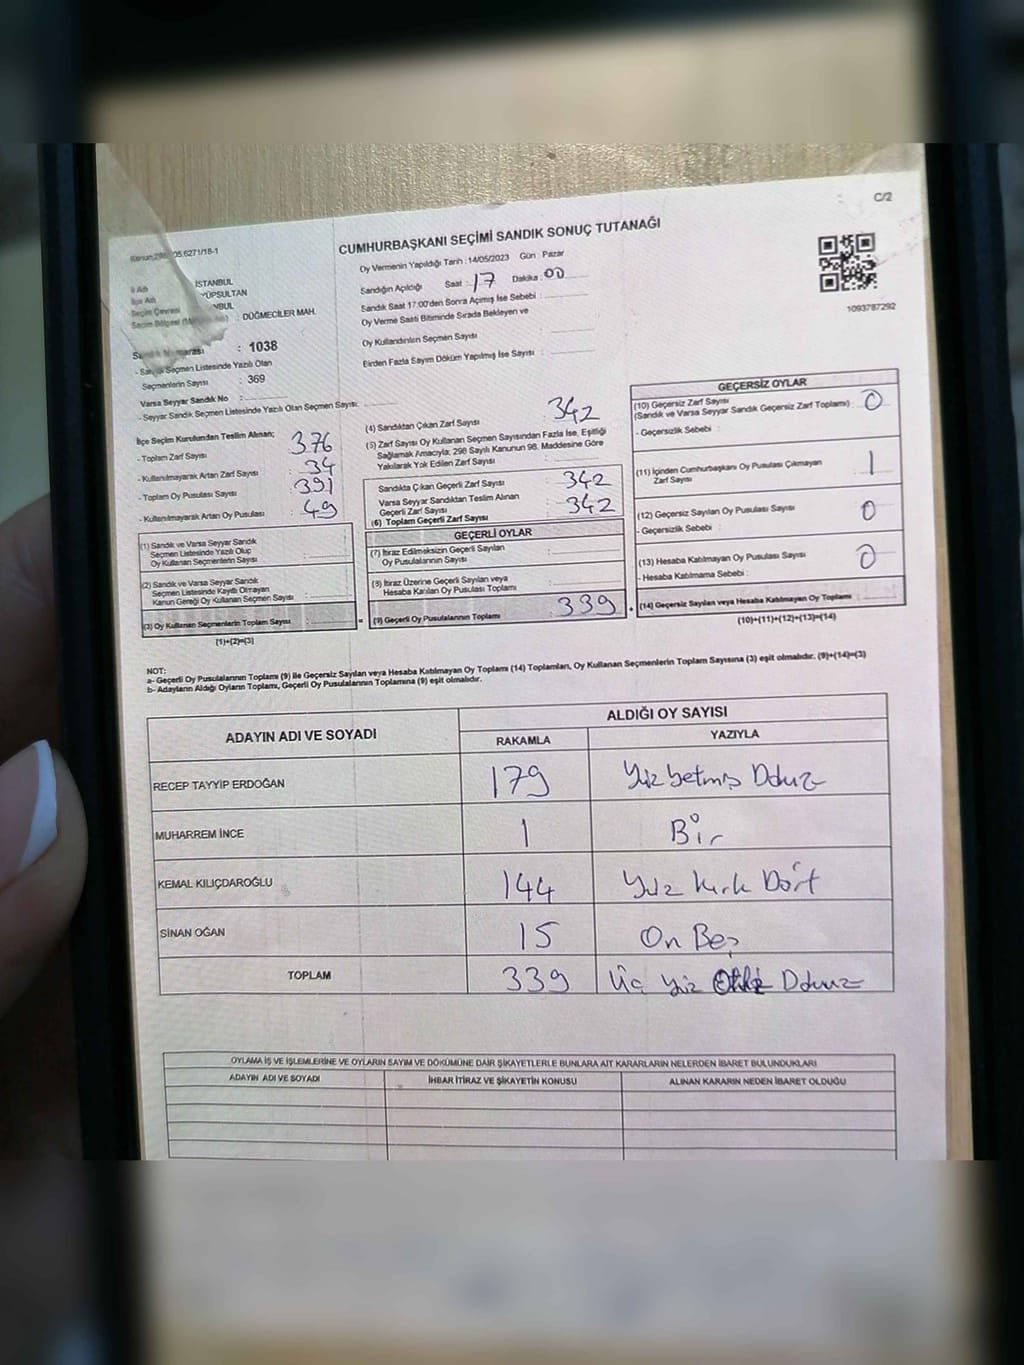 C/2
CUMHURBAŞKANI SEÇİMİ SANDIK SONUÇ TUTANAĞI
Oy Vermenin Yapıldığı Tarih : 14/05/2023 Gün : Pazar
Sandığın Açıldığı Saat : 17 Dakika : 00
Sandık Saat 17:00'den Sonra Açılmış İse Sebebi :
Oy Verme Saati Bitiminde Sırada Bekleyen ve
Oy Kullandırılan Seçmen Sayısı :
Birden Fazla Sayım Döküm Yapılmış İse Sayısı :
1093787292
İl Adı İSTANBUL
İlçe Adı YÜPSULTAN
Seçim Çevresi NBUL
Seçim Bölgesi : DÜĞMECİLER MAH.
: 1038
- Sandık Seçmen Listesinde Yazılı Olan
Seçmenlerin Sayısı : 369
Varsa Seyyar Sandık No :
- Seyyar Sandık Seçmen Listesinde Yazılı Olan Seçmen Sayısı:
İlçe Seçim Kurulundan Teslim Alınan;
- Toplam Zarf Sayısı : 376
- Kullanılmayarak Artan Zarf Sayısı : 34
- Toplam Oy Pusulası Sayısı : 391
- Kullanılmayarak Artan Oy Pusulası : 49
(1) Sandık ve Varsa Seyyar Sandık
Seçmen Listesinde Yazılı Olup
Oy Kullanan Seçmenlerin Sayısı :
(2) Sandık ve Varsa Seyyar Sandık
Seçmen Listesinde Kayıtlı Olmayan
Kanun Gereği Oy Kullanan Seçmen Sayısı :
(3) Oy Kullanan Seçmenlerin Toplam Sayısı :
(1)+(2)=(3)
(4) Sandıktan Çıkan Zarf Sayısı : 342
(5) Zarf Sayısı Oy Kullanan Seçmen Sayısından Fazla İse, Eşitliği
Sağlamak Amacıyla; 298 Sayılı Kanunun 98. Maddesine Göre
Yakılarak Yok Edilen Zarf Sayısı :
Sandıkta Çıkan Geçerli Zarf Sayısı : 342
Varsa Seyyar Sandıktan Teslim Alınan
Geçerli Zarf Sayısı : 342
(6) Toplam Geçerli Zarf Sayısı
GEÇERLİ OYLAR
(7) İtiraz Edilmeksizin Geçerli Sayılan
Oy Pusulalarının Sayısı :
(8) İtiraz Üzerine Geçerli Sayılan veya
Hesaba Katılan Oy Pusulası Toplamı :
= (9) Geçerli Oy Pusulalarının Toplamı : 339 +
GEÇERSİZ OYLAR
(10) Geçersiz Zarf Sayısı
(Sandık ve Varsa Seyyar Sandık Geçersiz Zarf Toplamı) : 0
- Geçersizlik Sebebi :
(11) İçinden Cumhurbaşkanı Oy Pusulası Çıkmayan
Zarf Sayısı : 1
(12) Geçersiz Sayılan Oy Pusulası Sayısı : 0
- Geçersizlik Sebebi :
(13) Hesaba Katılmayan Oy Pusulası Sayısı : 0
- Hesaba Katılmama Sebebi :
(14) Geçersiz Sayılan veya Hesaba Katılmayan Oy Toplamı :
(10)+(11)+(12)+(13)=(14)
NOT:
a- Geçerli Oy Pusulalarının Toplamı (9) ile Geçersiz Sayılan veya Hesaba Katılmayan Oy Toplamı (14) Toplamları, Oy Kullanan Seçmenlerin Toplam Sayısına (3) eşit olmalıdır. (9)+(14)=(3)
b- Adayların Aldığı Oyların Toplamı, Geçerli Oy Pusulalarının Toplamına (9) eşit olmalıdır.
ADAYIN ADI VE SOYADI ALDIĞI OY SAYISI
RAKAMLA YAZIYLA
RECEP TAYYİP ERDOĞAN 179 Yüz yetmiş Dokuz
MUHARREM İNCE 1 Bir
KEMAL KILIÇDAROĞLU 144 Yüz kırk Dört
SİNAN OĞAN 15 On Beş
TOPLAM 339 Üç Yüz Dokuz
OYLAMA İŞ VE İŞLEMLERİNE VE OYLARIN SAYIM VE DÖKÜMÜNE DAİR ŞİKAYETLERLE BUNLARA AİT KARARLARIN NELERDEN İBARET BULUNDUKLARI
ADAYIN ADI VE SOYADI İHBAR İTİRAZ VE ŞİKAYETİN KONUSU ALINAN KARARIN NEDEN İBARET OLDUĞU